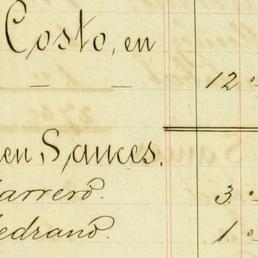 Costo, en
— — 12 o
en Sauces.
arrero. 3. o
edrano. 1. o